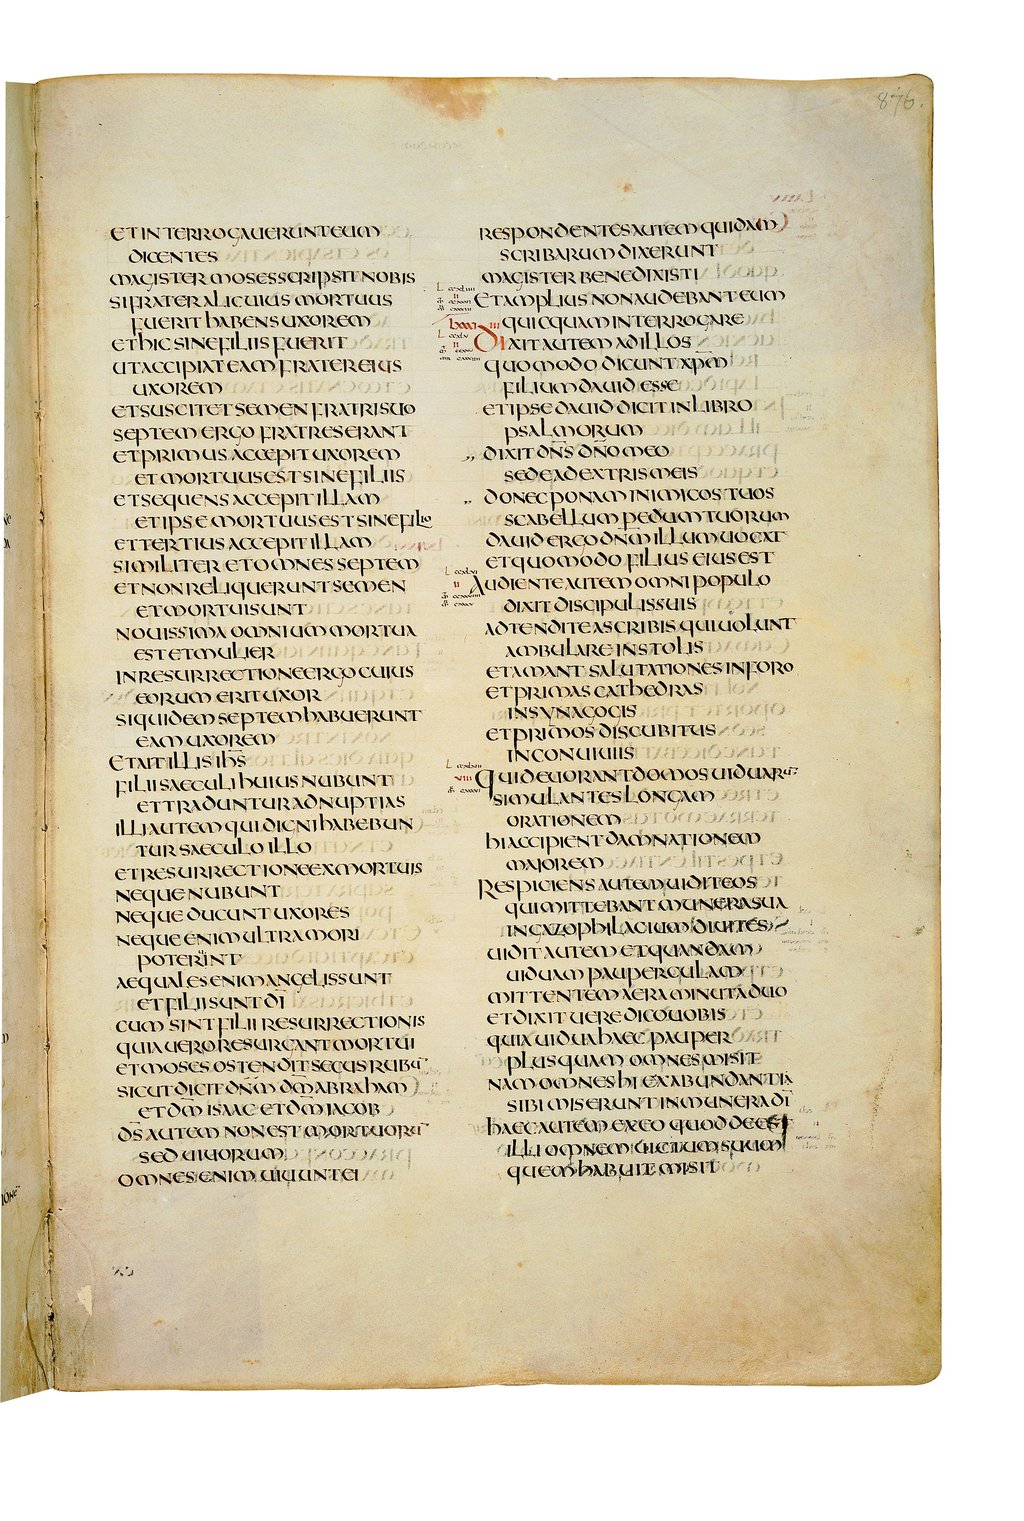 876.
ET INTERROGAUERUNT EUM
DICENTES
MAGISTER MOSES SCRIPSIT NOBIS
SI FRATER ALICUIUS MORTUUS
FUERIT HABENS UXOREM
ET HIC SINE FILIIS FUERIT
UT ACCIPIAT EAM FRATER EIUS
UXOREM
ET SUSCITET SEMEN FRATRI SUO
SEPTEM ERGO FRATRES ERANT
ET PRIMUS ACCEPIT UXOREM
ET MORTUUS EST SINE FILIIS
ET SEQUENS ACCEPIT ILLAM
ET IPSE MORTUUS EST SINE FILIO
ET TERTIUS ACCEPIT ILLAM
SIMILITER ET OMNES SEPTEM
ET NON RELIQUERUNT SEMEN
ET MORTUI SUNT
NOUISSIMA OMNIUM MORTUA
EST ET MULIER
IN RESURRECTIONE ERGO CUIUS
EORUM ERIT UXOR
SIQUIDEM SEPTEM HABUERUNT
EAM UXOREM
ET AIT ILLIS IH̅S
FILII SAECULI HUIUS NUBUNT
ET TRADUNTUR AD NUPTIAS
ILLI AUTEM QUI DIGNI HABEBUN
TUR SAECULO ILLO
ET RESURRECTIONE EX MORTUIS
NEQUE NUBUNT
NEQUE DUCUNT UXORES
NEQUE ENIM ULTRA MORI
POTERINT
AEQUALES ENIM ANGELIS SUNT
ET FILII SUNT D̅I
CUM SINT FILII RESURRECTIONIS
QUIA UERO RESURGANT MORTUI
ET MOSES OSTENDIT SECUS RUBU̅
SICUT DICIT DN̅M D̅M ABRAHAM
ET D̅M ISAAC ET D̅M IACOB
D̅S AUTEM NON EST MORTUORU̅
SED UIUORUM
OMNES ENIM UIUUNT EI
RESPONDENTES AUTEM QUIDAM
SCRIBARUM DIXERUNT
MAGISTER BENE DIXISTI
ET AMPLIUS NON AUDEBANT EUM
QUICQUAM INTERROGARE
DIXIT AUTEM AD ILLOS
QUOMODO DICUNT XP̅M
FILIUM DAUID ESSE
ET IPSE DAUID DICIT IN LIBRO
PSALMORUM
,, DIXIT DN̅S DN̅O MEO
SEDE AD EXTRIS MEIS
,, DONEC PONAM INIMICOS TUOS
SCABELLUM PEDUM TUORUM
DAUID ERGO DN̅M ILLUM UOCAT
ET QUOMODO FILIUS EIUS EST
AUDIENTE AUTEM OMNI POPULO
DIXIT DISCIPULIS SUIS
ADTENDITE A SCRIBIS QUI UOLUNT
AMBULARE IN STOLIS
ET AMANT SALUTATIONES IN FORO
ET PRIMAS CATHEDRAS
IN SYNAGOGIS
ET PRIMOS DISCUBITUS
IN CONUIUIIS
QUI DEUORANT DOMOS UIDUARU̅
SIMULANTES LONGAM
ORATIONEM
HI ACCIPIENT DAMNATIONEM
MAIOREM
RESPICIENS AUTEM UIDIT EOS
QUI MITTEBANT MUNERA SUA
IN GAZOPHILACIUM DIUITES
UIDIT AUTEM ET QUANDAM
UIDUAM PAUPERCULAM
MITTENTEM AERA MINUTA DUO
ET DIXIT UERE DICO UOBIS
QUIA UIDUA HAEC PAUPER
PLUS QUAM OMNES MISIT
NAM OMNES HI EX ABUNDANTIA
SIBI MISERUNT IN MUNERA D̅I
HAEC AUTEM EX EO QUOD DEEST
ILLI OMNEM UICTUM SUUM
QUEM HABUIT MISIT